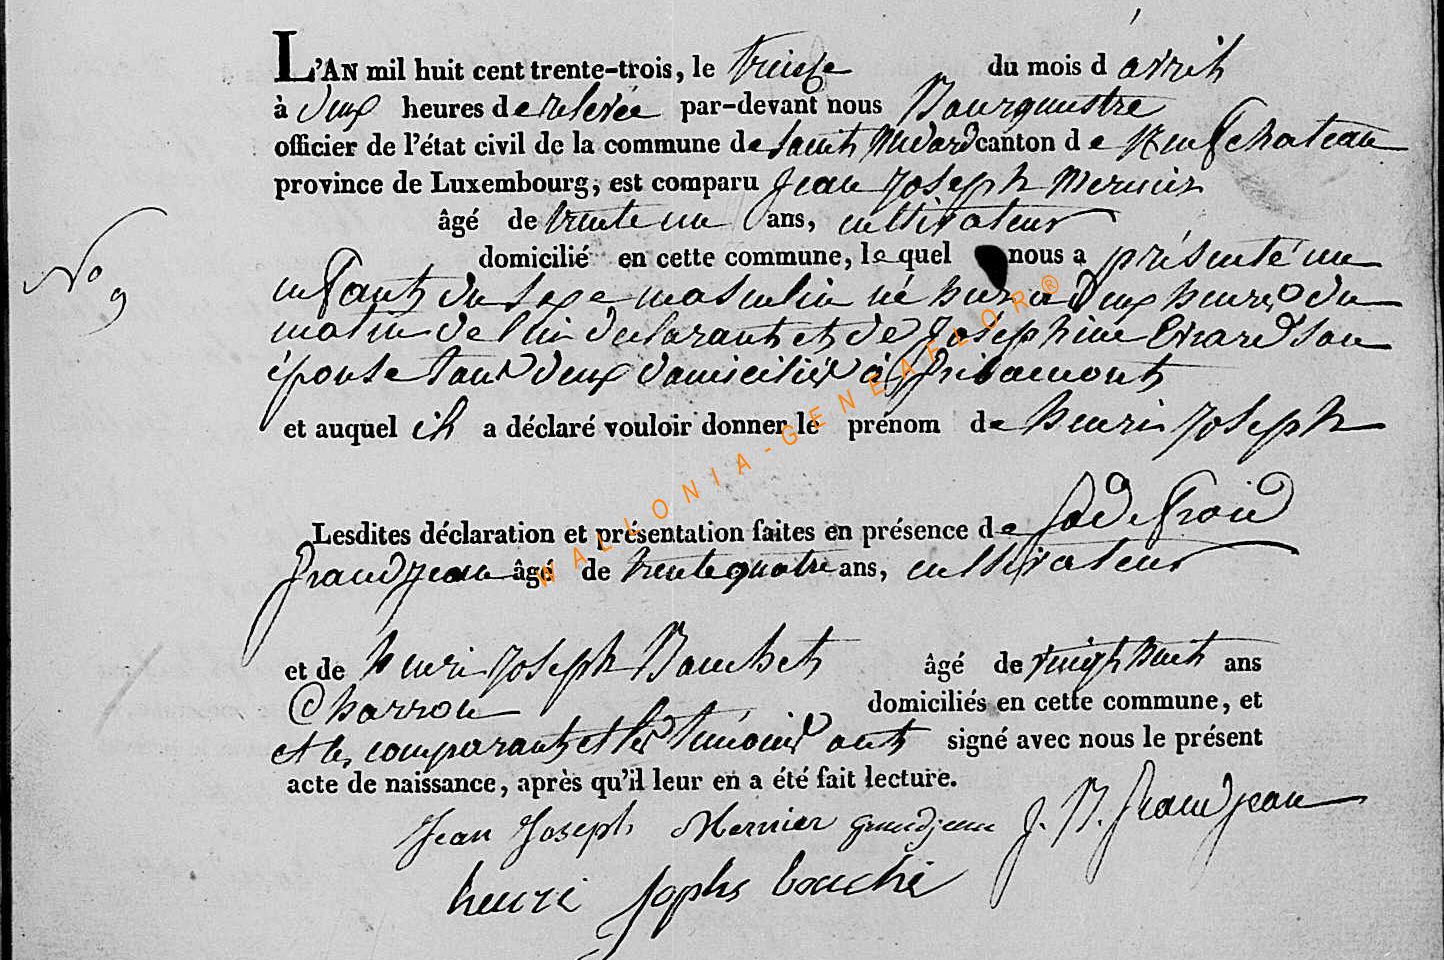 L'AN mil huit cent trente-trois, le treize du mois d'avril
à deux heures de relevée par-devant nous Bourguestre
officier de l'état civil de la commune de Saint Médard canton de Neufchateau
province de Luxembourg, est comparu Jean Joseph Mernier
âgé de trente un ans, cultivateur
domicilié en cette commune, le quel nous a présenté un
No 9
enfant du sexe masculin né hier à deux heures du
matin de lui déclarant et de Joséphine Evrard son
épouse tous deux domiciliés à Gribamont
et auquel il a déclaré vouloir donner le prénom de henri Joseph
Lesdites déclaration et présentation faites en présence de Godefroid
Grandjean âgé de trente quatre ans, cultivateur
et de henri Joseph Bouchet âgé de vingt huit ans
Charron domiciliés en cette commune, et
et les comparant et les témoins ont signé avec nous le présent
acte de naissance, après qu'il leur en a été fait lecture.
Jean Joseph Mernier grandjean J. B. Grandjean
henri Jophs bouché
WALLONIA-GENEAFLOR®